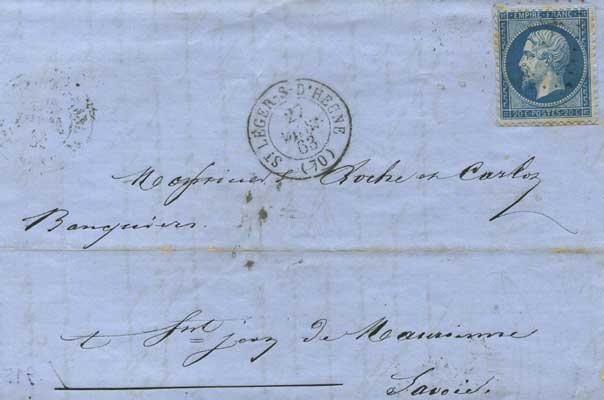 EMPIRE FRANC
20 C POSTES 20 C
ST LÉGER-S-D'HEUNE
27
63
(70)
Messieurs Roche et Carloz
Banquiers
à Snt jean de Maurienne
Savoie.